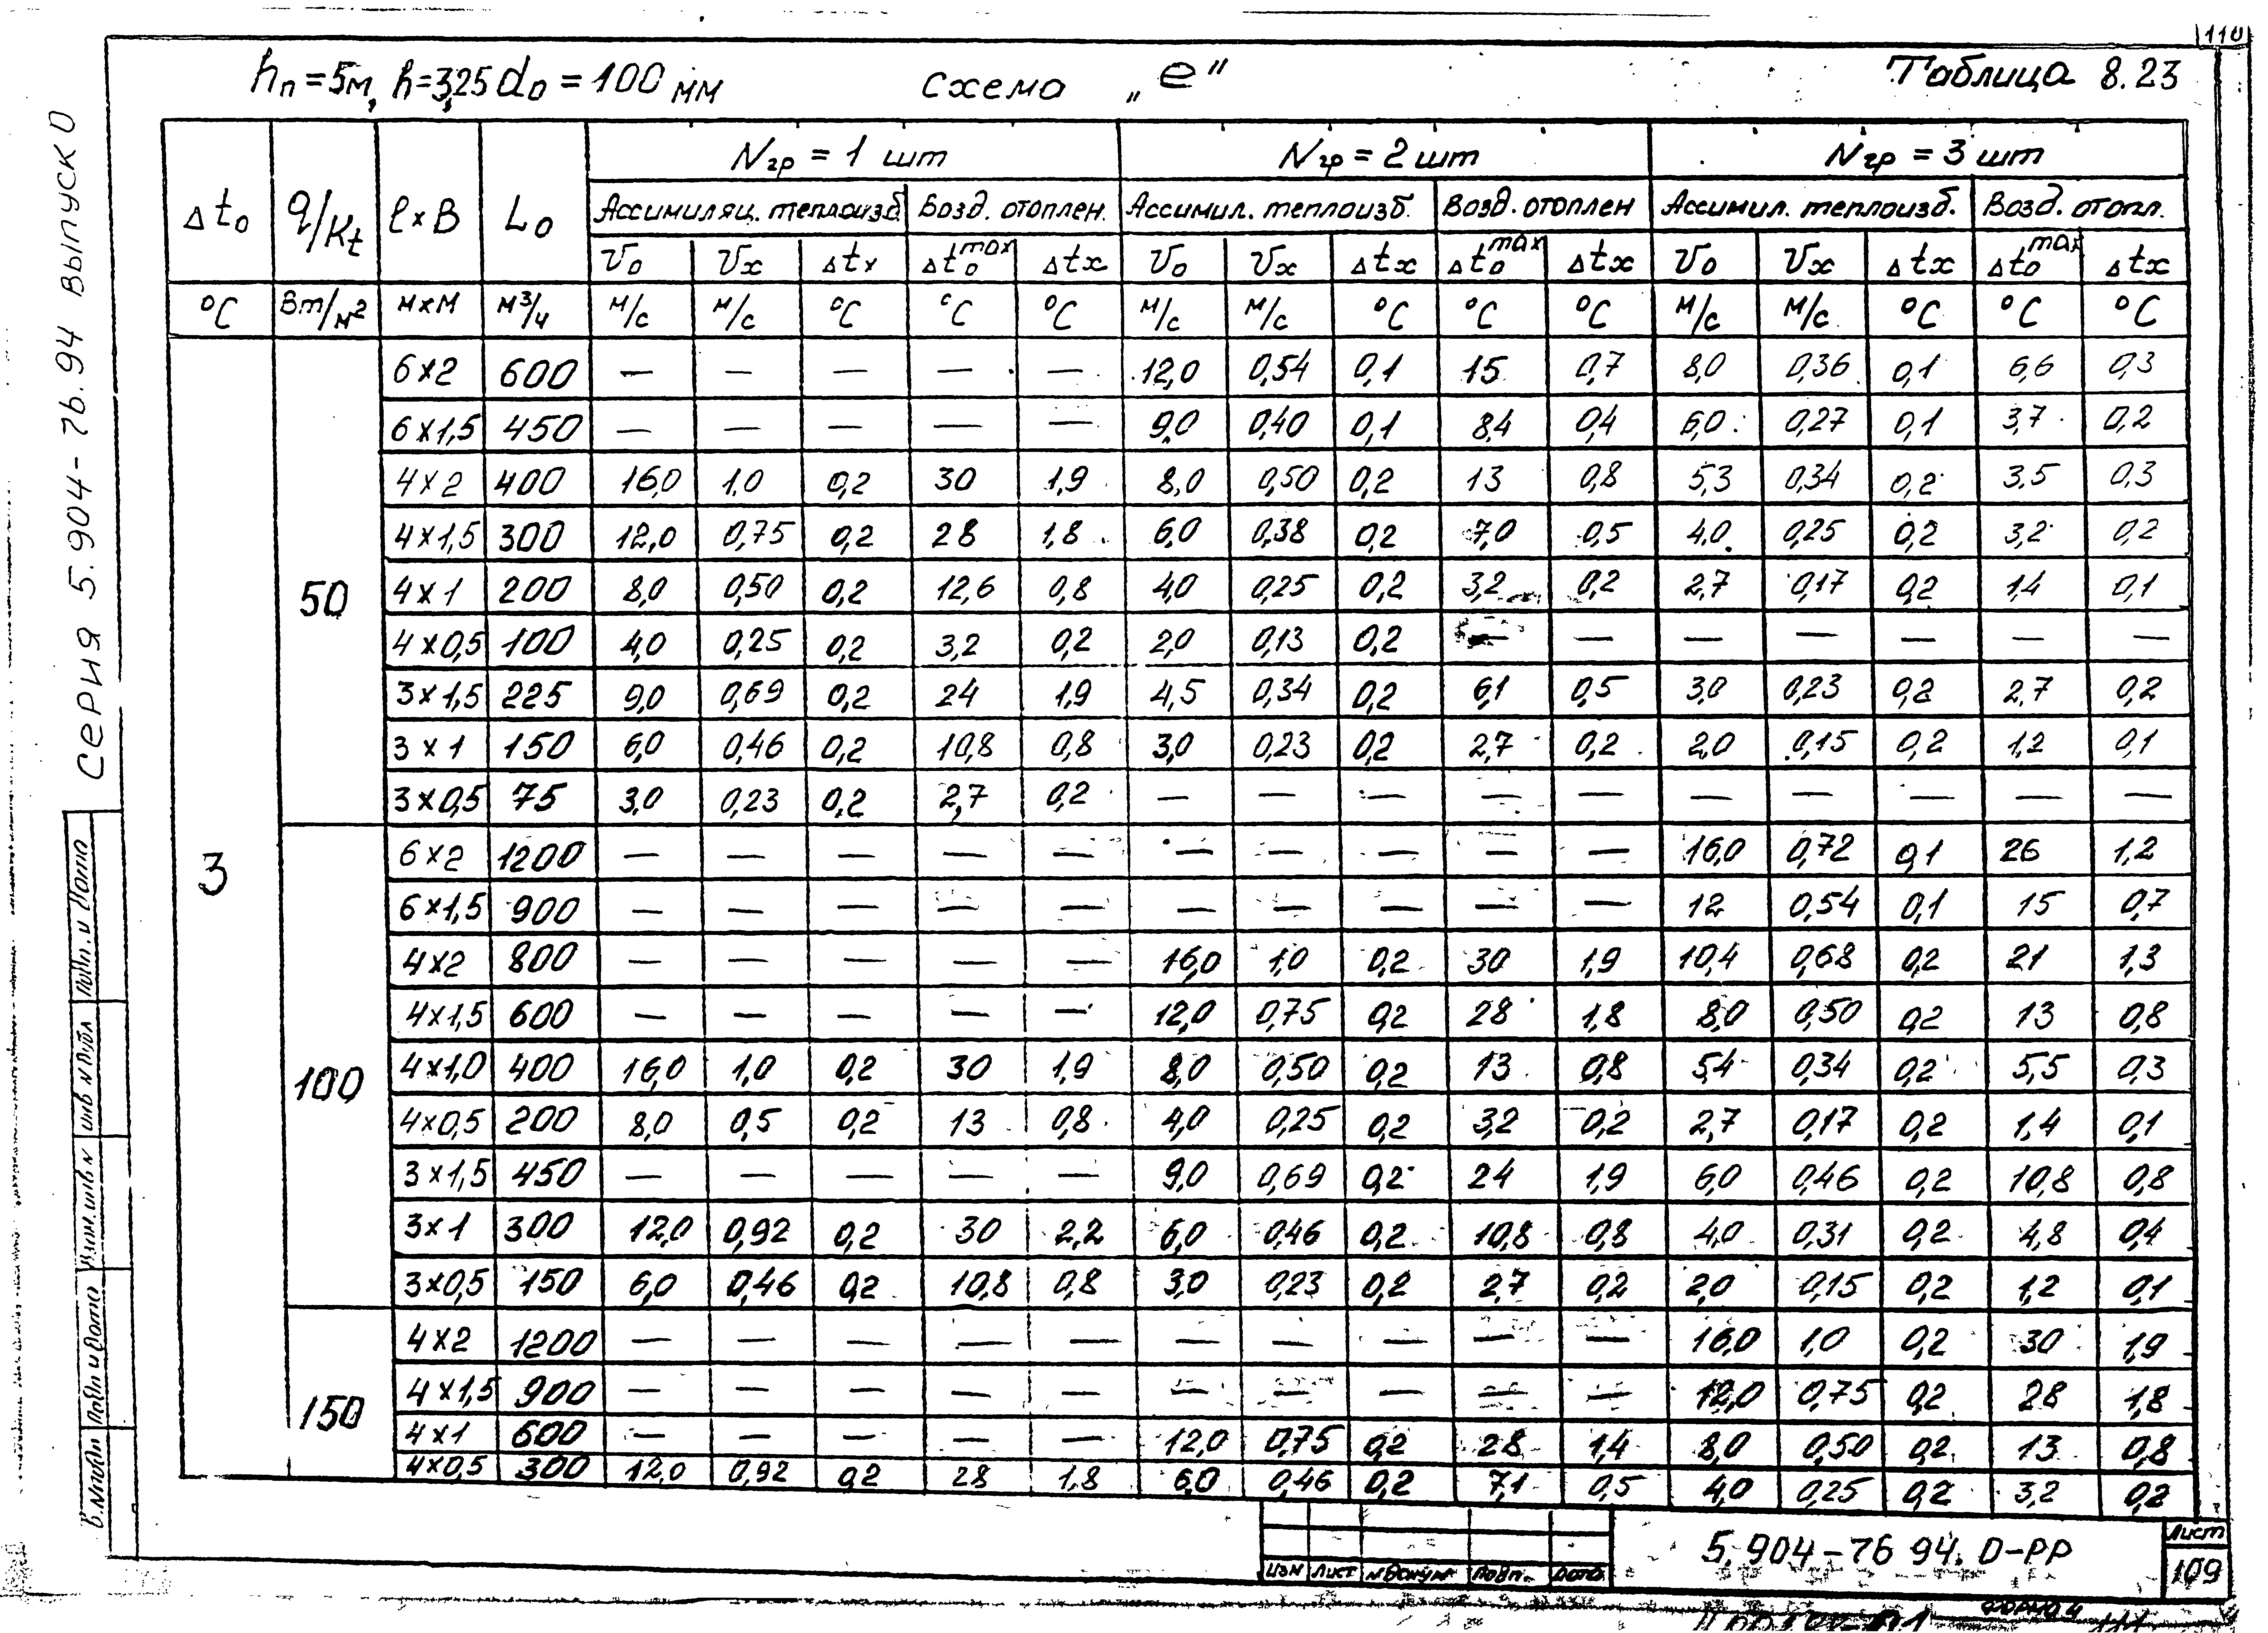 110
hп=5м, h=3,25 d₀=100 мм схема „е" Таблица 8.23
Серия 5.904-76.94 выпуск 0
Δt₀ q/Kt l×B L₀ Nгр = 1 шт Nгр = 2 шт Nгр = 3 шт
Ассимиляц. теплоизб. Возд. отоплен. Ассимил. теплоизб. Возд. отоплен Ассимил. теплоизб. Возд. отопл.
V₀ Vx Δtx Δt₀max Δtx V₀ Vx Δtx Δt₀max Δtx V₀ Vx Δtx Δt₀max Δtx
°C Вт/м² м×м м³/ч м/с м/с °C °C °C м/с м/с °C °C °C м/с м/с °C °C °C
3
50
6×2 600 — — — — — 12,0 0,54 0,1 15 0,7 8,0 0,36 0,1 6,6 0,3
6×1,5 450 — — — — — 9,0 0,40 0,1 8,4 0,4 6,0 0,27 0,1 3,7 0,2
4×2 400 16,0 1,0 0,2 30 1,9 8,0 0,50 0,2 13 0,8 5,3 0,34 0,2 3,5 0,3
4×1,5 300 12,0 0,75 0,2 28 1,8 6,0 0,38 0,2 7,0 0,5 4,0 0,25 0,2 3,2 0,2
4×1 200 8,0 0,50 0,2 12,6 0,8 4,0 0,25 0,2 3,2 0,2 2,7 0,17 0,2 1,4 0,1
4×0,5 100 4,0 0,25 0,2 3,2 0,2 2,0 0,13 0,2 — — — — — — —
3×1,5 225 9,0 0,69 0,2 24 1,9 4,5 0,34 0,2 6,1 0,5 3,0 0,23 0,2 2,7 0,2
3×1 150 6,0 0,46 0,2 10,8 0,8 3,0 0,23 0,2 2,7 0,2 2,0 0,15 0,2 1,2 0,1
3×0,5 75 3,0 0,23 0,2 2,7 0,2 — — — — — — — — — —
100
6×2 1200 — — — — — — — — — — 16,0 0,72 0,1 26 1,2
6×1,5 900 — — — — — — — — — — 12 0,54 0,1 15 0,7
4×2 800 — — — — — 16,0 1,0 0,2 30 1,9 10,4 0,68 0,2 21 1,3
4×1,5 600 — — — — — 12,0 0,75 0,2 28 1,8 8,0 0,50 0,2 13 0,8
4×1,0 400 16,0 1,0 0,2 30 1,9 8,0 0,50 0,2 13 0,8 5,4 0,34 0,2 5,5 0,3
4×0,5 200 8,0 0,5 0,2 13 0,8 4,0 0,25 0,2 3,2 0,2 2,7 0,17 0,2 1,4 0,1
3×1,5 450 — — — — — 9,0 0,69 0,2 24 1,9 6,0 0,46 0,2 10,8 0,8
3×1 300 12,0 0,92 0,2 30 2,2 6,0 0,46 0,2 10,8 0,8 4,0 0,31 0,2 4,8 0,4
3×0,5 150 6,0 0,46 0,2 10,8 0,8 3,0 0,23 0,2 2,7 0,2 2,0 0,15 0,2 1,2 0,1
150
4×2 1200 — — — — — — — — — — 16,0 1,0 0,2 30 1,9
4×1,5 900 — — — — — — — — — — 12,0 0,75 0,2 28 1,8
4×1 600 — — — — — 12,0 0,75 0,2 28 1,4 8,0 0,50 0,2 13 0,8
4×0,5 300 12,0 0,92 0,2 28 1,8 6,0 0,46 0,2 7,1 0,5 4,0 0,25 0,2 3,2 0,2
Подп. и дата
Инв N дубл
Взам. инв N
Подп и дата
изм лист N докум Подп. Дата
5.904-76 94. 0-РР
Лист
109
Формат 4